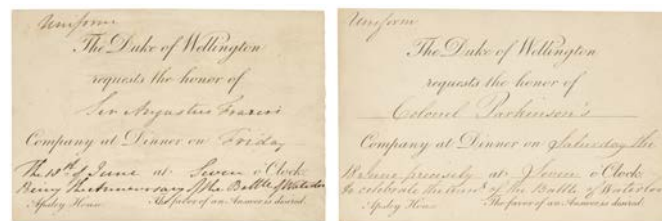 Uniform
The Duke of Wellington
requests the honor of
Sir Augustus Frazer's
Company at Dinner on Friday
The 18th of June at Seven o'Clock
Being the Anniversary of the Battle of Waterloo
Apsley House The favor of an Answer is desired.
Uniform
The Duke of Wellington
requests the honor of
Colonel Parkinson's
Company at Dinner on Saturday the
18 June precisely at Seven o'Clock
to celebrate the Anns of the Battle of Waterloo
Apsley House The favor of an Answer is desired.